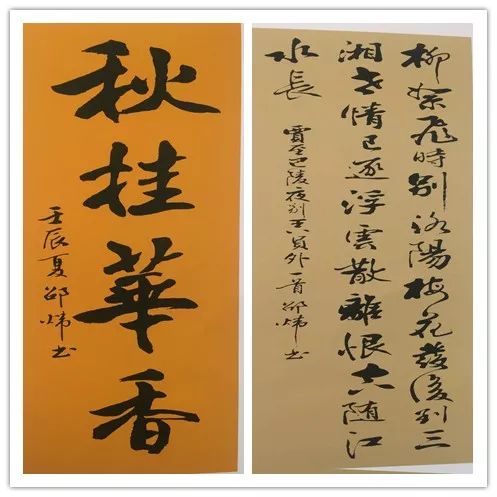 秋桂華香
壬辰夏邵炜书
柳絮飛時别洛陽梅花發後到三
湘世情已逐浮雲散離恨空随江
水長
賈至巴陵夜别王八員外一首邵炜书